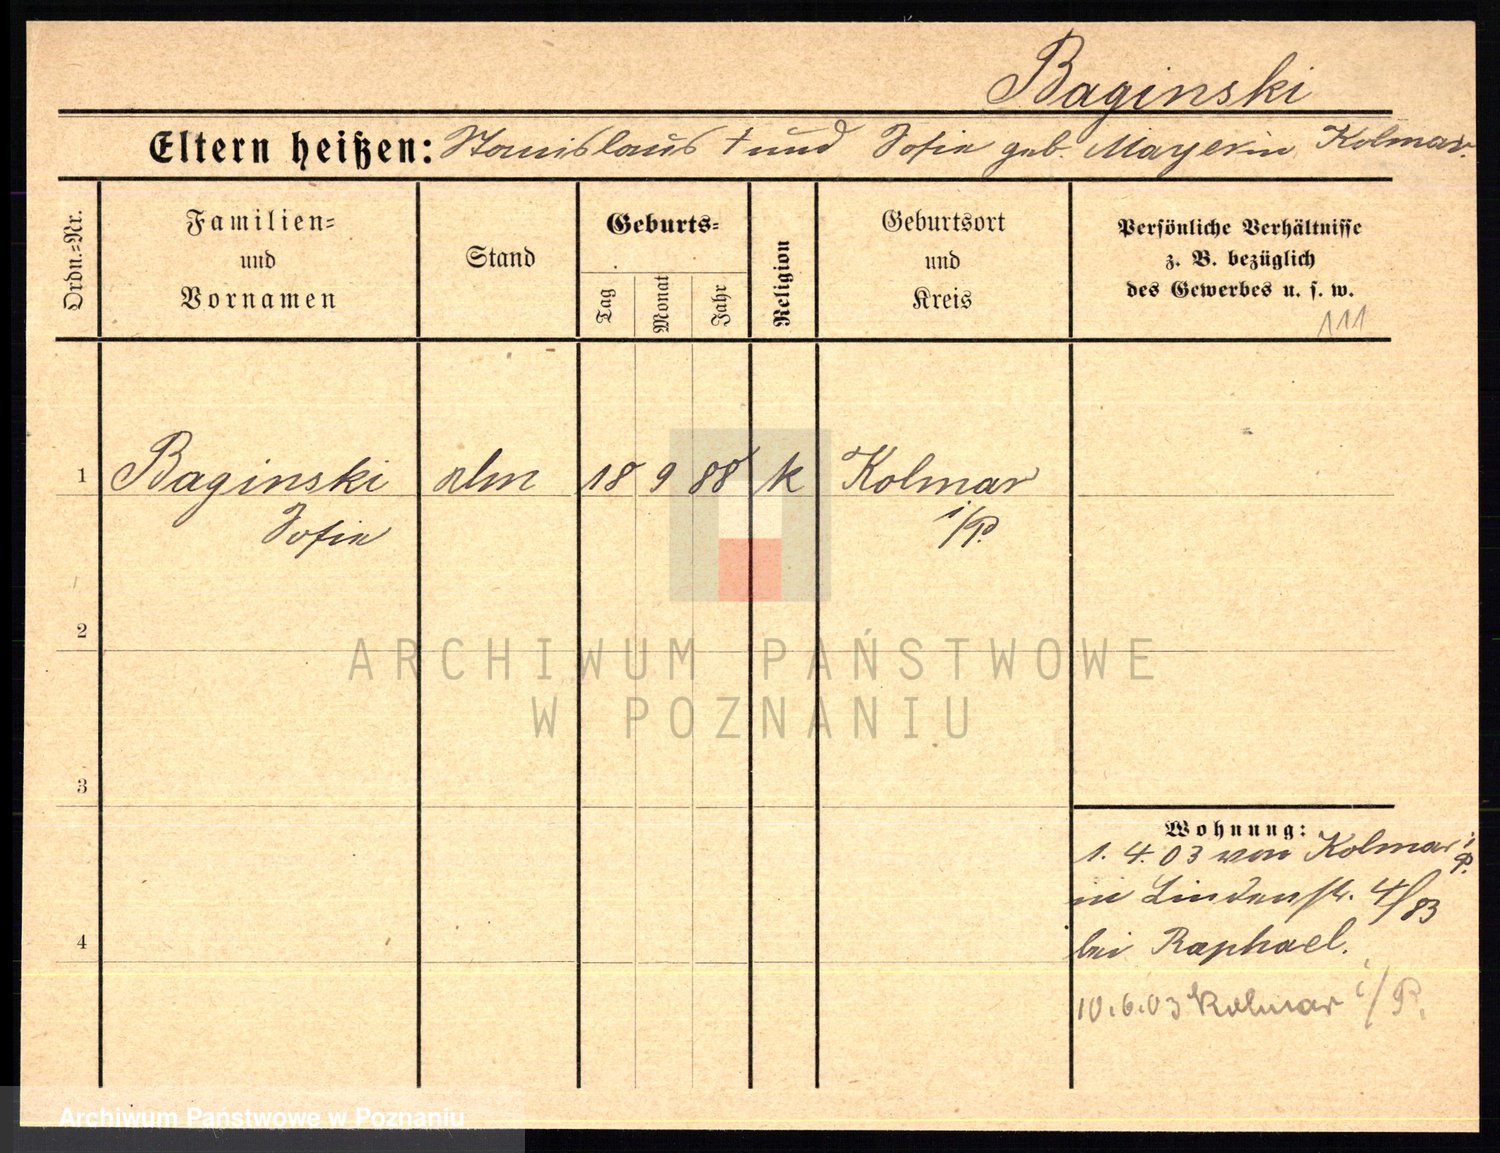 Baginski
Eltern heißen: Stanislaus † und Sofie geb. Mayer in Kolmar.
Ordn.=Nr.
Familien=
und
Vornamen
Stand
Geburts=
Tag
Monat
Jahr
Religion
Geburtsort
und
Kreis
Persönliche Verhältnisse
z. B. bezüglich
des Gewerbes u. s. w.
111
1 Baginski 18 9 88 k Kolmar
Sofie i/P.
2
3
4
Wohnung:
1. 4. 03 von Kolmar i P.
in Lindenstr. 4/83
bei Raphael.
10.6.03 Kolmar i/P.
ARCHIWUM PAŃSTWOWE
W POZNANIU
Archiwum Państwowe w Poznaniu